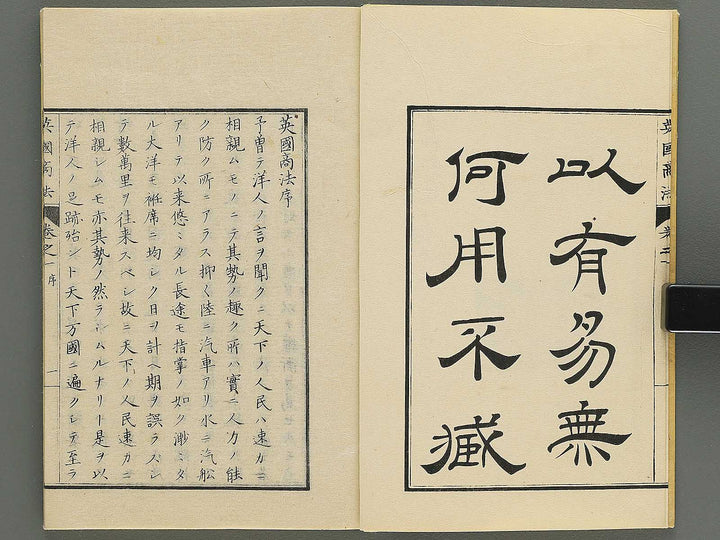 以有易無
何用不臧
英國商法
英國商法序
予曽テ洋人ノ言ヲ聞クニ天下ノ人民ハ速カニ
相親シムモノニテ其勢ノ趣ク所ハ實ニ人力ノ能
ク防ク所ニアラス抑〻陸ニ汽車アリ水ニ汽舩
アリテ以来悠〻タル長途モ指掌ノ如ク渺〻タ
ル大洋モ袵席ニ均シク日ヲ計ヘ期ヲ誤ラスシ
テ數萬里ヲ往来スベシ故ニ天下ノ人民速カニ
相親シムモ亦其勢ノ然ラシムルナリト是ヲ以
テ洋人ノ足跡殆ント天下万國ニ遍クシテ至ラ
英國商法 卷之一 序 一